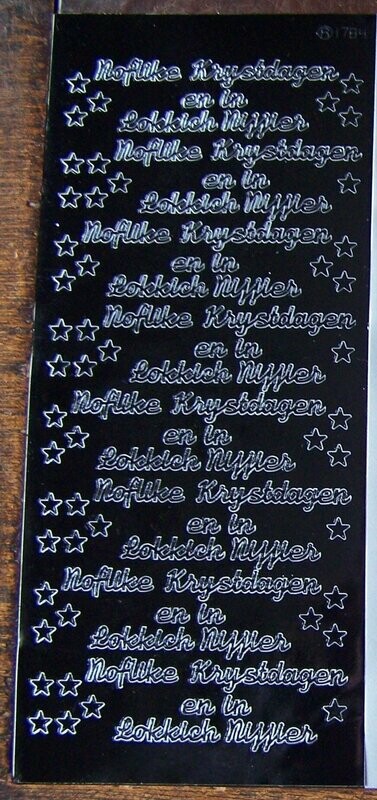 ® 1784
Noflike Krystdagen
en in
Lokkich Nijjier
Noflike Krystdagen
en in
Lokkich Nijjier
Noflike Krystdagen
en in
Lokkich Nijjier
Noflike Krystdagen
en in
Lokkich Nijjier
Noflike Krystdagen
en in
Lokkich Nijjier
Noflike Krystdagen
en in
Lokkich Nijjier
Noflike Krystdagen
en in
Lokkich Nijjier
Noflike Krystdagen
en in
Lokkich Nijjier